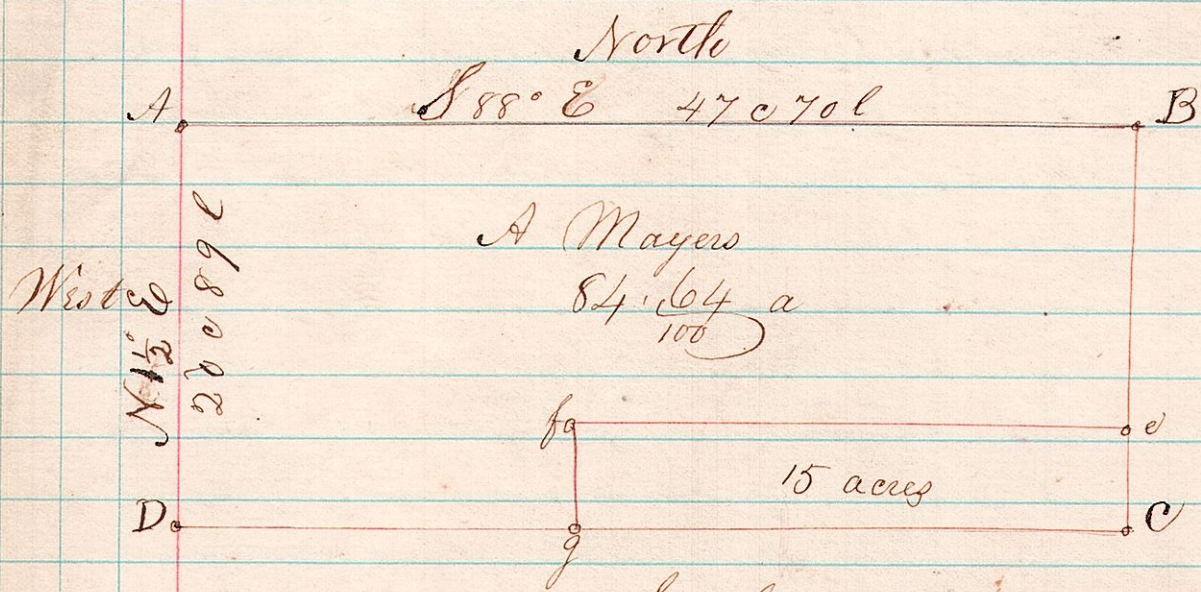 North
S 88° E 47 c 70 l
A
B
A Mayers
84. 64/100 a
West
N 1½° E
20 c 89 l
f
e
15 acres
D
g
C